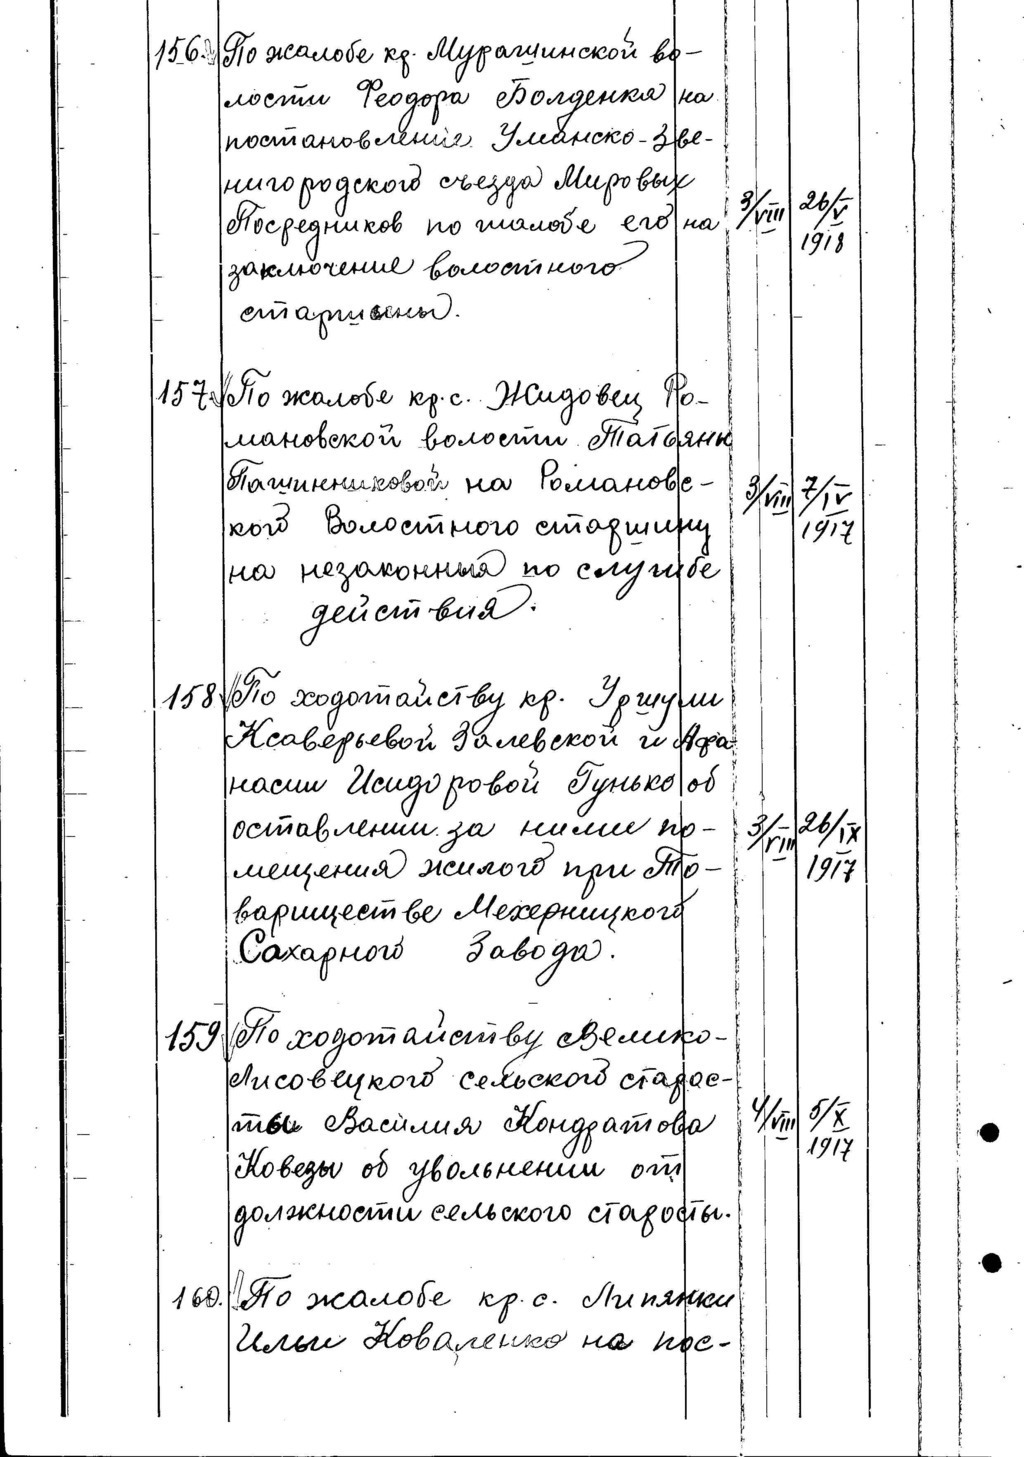 156. По жалобе кр. Мурашинской во-
лости Феодора Болденка на
постановление Уманско-Зве-
нигородского съезда Мировых
Посредников по жалобе его на
заключение волостного
старшины.
3/VIII 26/V
1918
157. По жалобе кр. с. Жидовец Ро-
мановской волости Татьяны
Пашинниковой на Романовс-
кого Волостного старшину
на незаконныя по службе
действия.
3/VIII 7/IV
1917
158 По ходотайству кр. Уршули
Ксаверьевой Залевской и Афа
насии Исидоровой Гунько об
оставлении за ними по-
мещения жилого при То-
вариществе Мехерницкого
Сахарного Завода.
3/VIII 26/IX
1917
159 По ходотайству Велико-
Лисовецкого сельского старос-
ты Василия Кондратова
Ковезы об увольнении от
должности сельского старосты.
4/VIII 5/X
1917
160. По жалобе кр. с. Липянки
Ильи Коваленко на пос-